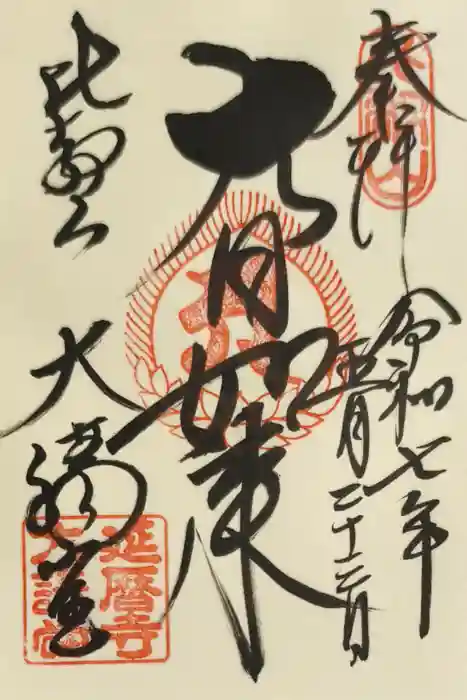 奉拝
令和七年
五月二十二日
大日如来
比叡山
大講堂
延暦寺
大講堂